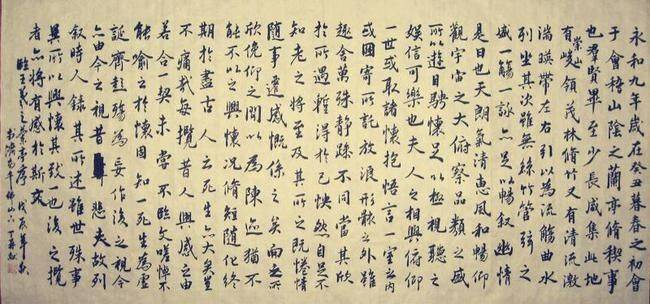 永和九年歲在癸丑暮春之初會
于會稽山陰之蘭亭脩稧事
也羣賢畢至少長咸集此地
有崇山峻領茂林脩竹又有清流激
湍暎帶左右引以為流觴曲水
列坐其次雖無絲竹管弦之
盛一觴一詠亦足以暢叙幽情
是日也天朗氣清惠風和暢仰
觀宇宙之大俯察品類之盛
所以遊目騁懷足以極視聽之
娛信可樂也夫人之相與俯仰
一世或取諸懷抱悟言一室之內
或因寄所託放浪形骸之外雖
趣舍萬殊靜躁不同當其欣
於所遇暫得於己怏然自足不
知老之將至及其所之既惓情
隨事遷感慨係之矣向之所
欣俛仰之間以為陳迹猶不
能不以之興懷況脩短隨化終
期於盡古人云死生亦大矣豈
不痛哉每攬昔人興感之由
若合一契未嘗不臨文嗟悼不
能喻之於懷固知一死生為虛
誕齊彭殤為妄作後之視今
亦由今之視昔悲夫故列
叙時人錄其所述雖世殊事
異所以興懷其致一也後之攬
者亦將有感於斯文
臨王羲之蘭亭序戊辰年秋